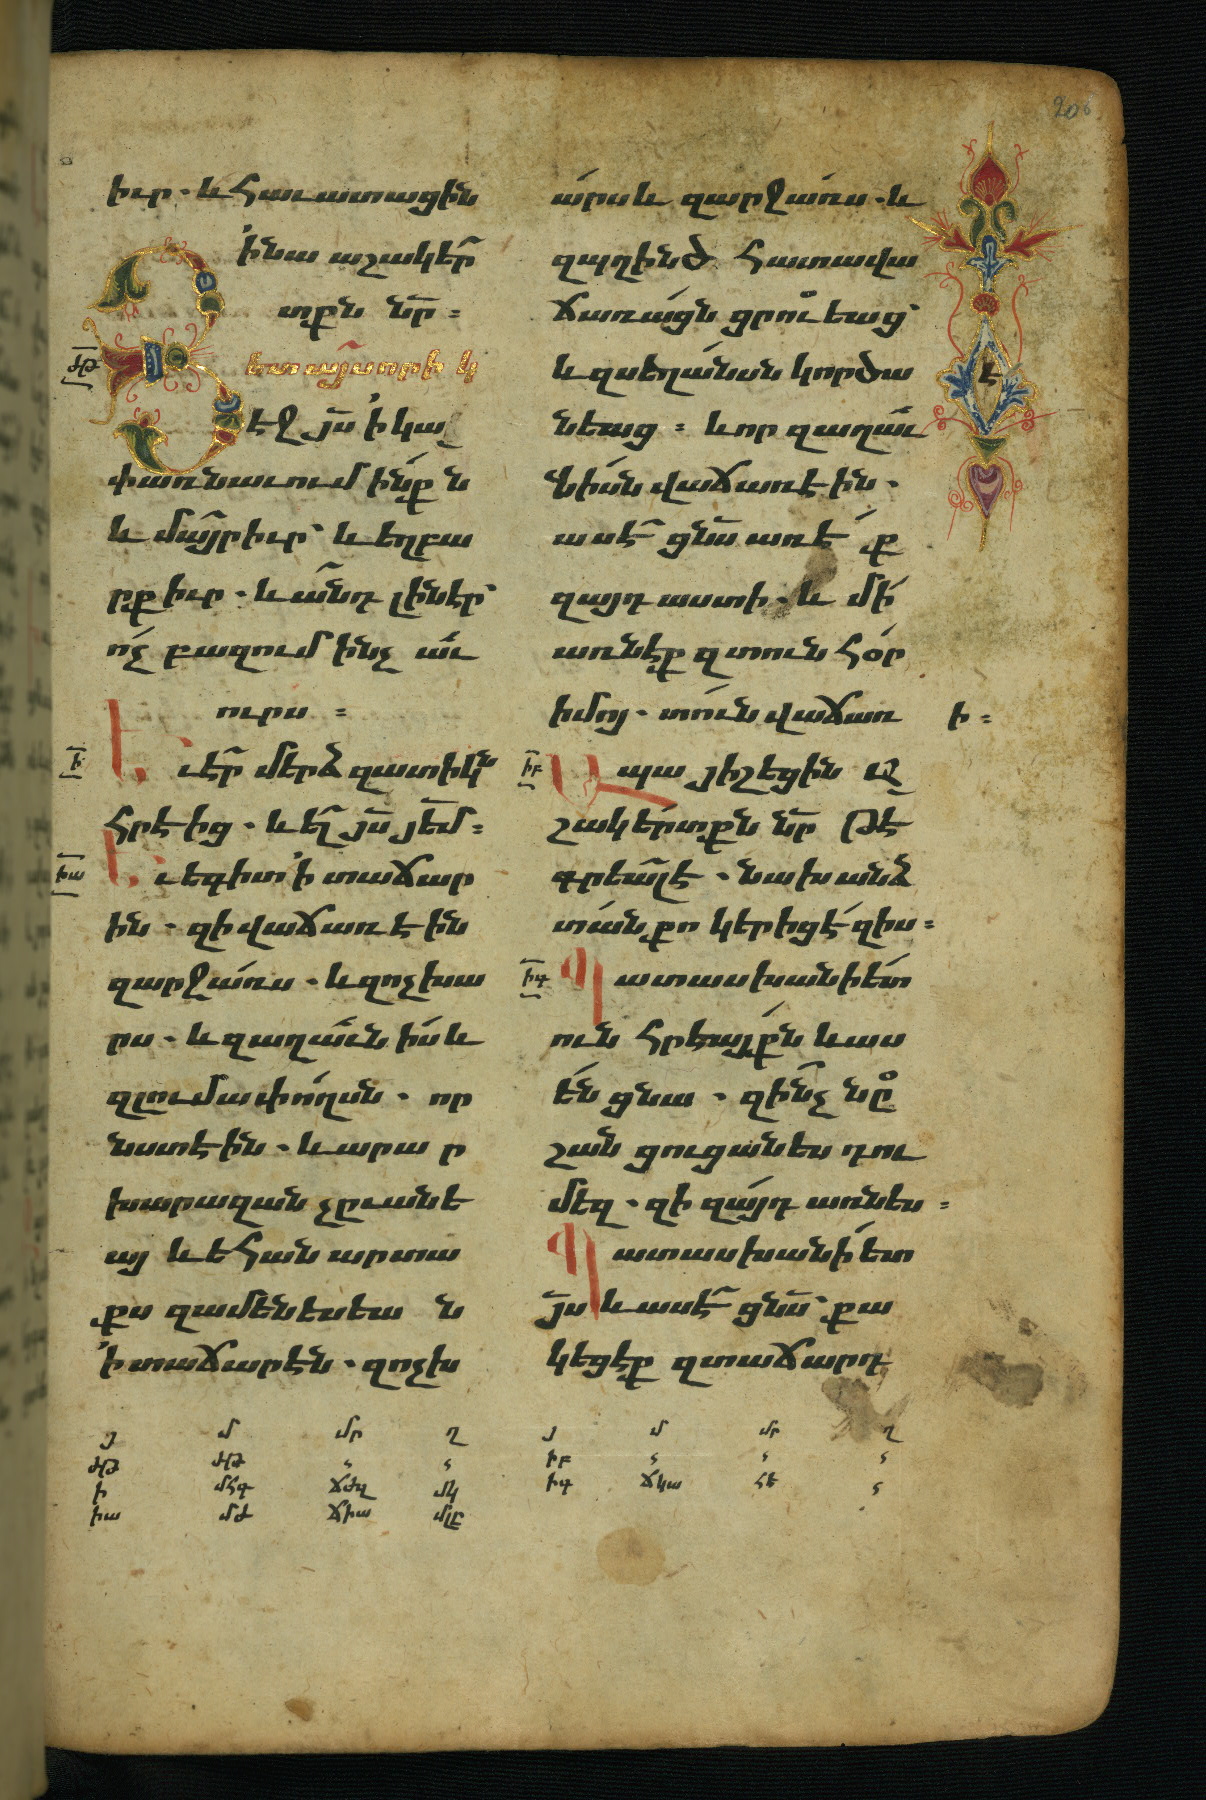 206
իւր. և հաւատացին
՚ինա աշակեր
տքն նր:
ժթ
ետ այսորիկ
էջ յս ՚ի կա
փառնաւում ինքն
և մայրիւր և եղբա
րք իւր. և անդ լինէր
ոչ բազում ինչ աւ
ուրս :
ի
Եւ էր մերձ զատիկն
հրէից. և ել յս յեմ:
իա
Եւ եգիտ ՚ի տաճար
ին. զի վաճառէին
զարջառս. և զոչխա
րս. և զաղաւնիս և
զլումափողսն. որ
նստէին. և արար
խարազան չըւանե
այ և եհան արտա
քս զամենեսեան
՚ի տաճարէն. զոչխ
արս և զարջառս. և
զպղինձ հատավա
ճառացն ցրուեաց
և զսեղանսն կործա
նեաց: և որ զաղաւ
նիսն վաճառէին.
ասէ ցնս առէք
զայդ աստի. և մի
առնէք զտուն հօր
իմոյ. տուն վաճառի:
է
իբ
Ապա յիշեցին ա
շակերտքն նր թէ
գրեալ է. նախանձ
տան քո կերիցէ զիս:
իգ
Պատասխանի ետ
ուն հրեայքն և աս
են ցնա. զինչ նը
շան ցուցանես դու
մեզ. զի զայդ առնես:
Պատասխանի ետ
յս և ասէ ցնս քա
կեցէք զտաճարդ
յ մ մր ղ
ժթ ժթ
ի մհգ ճժվ մկ
իա մժ ճիա մլը
յ մ մր ղ
իբ
իգ ճկա հե